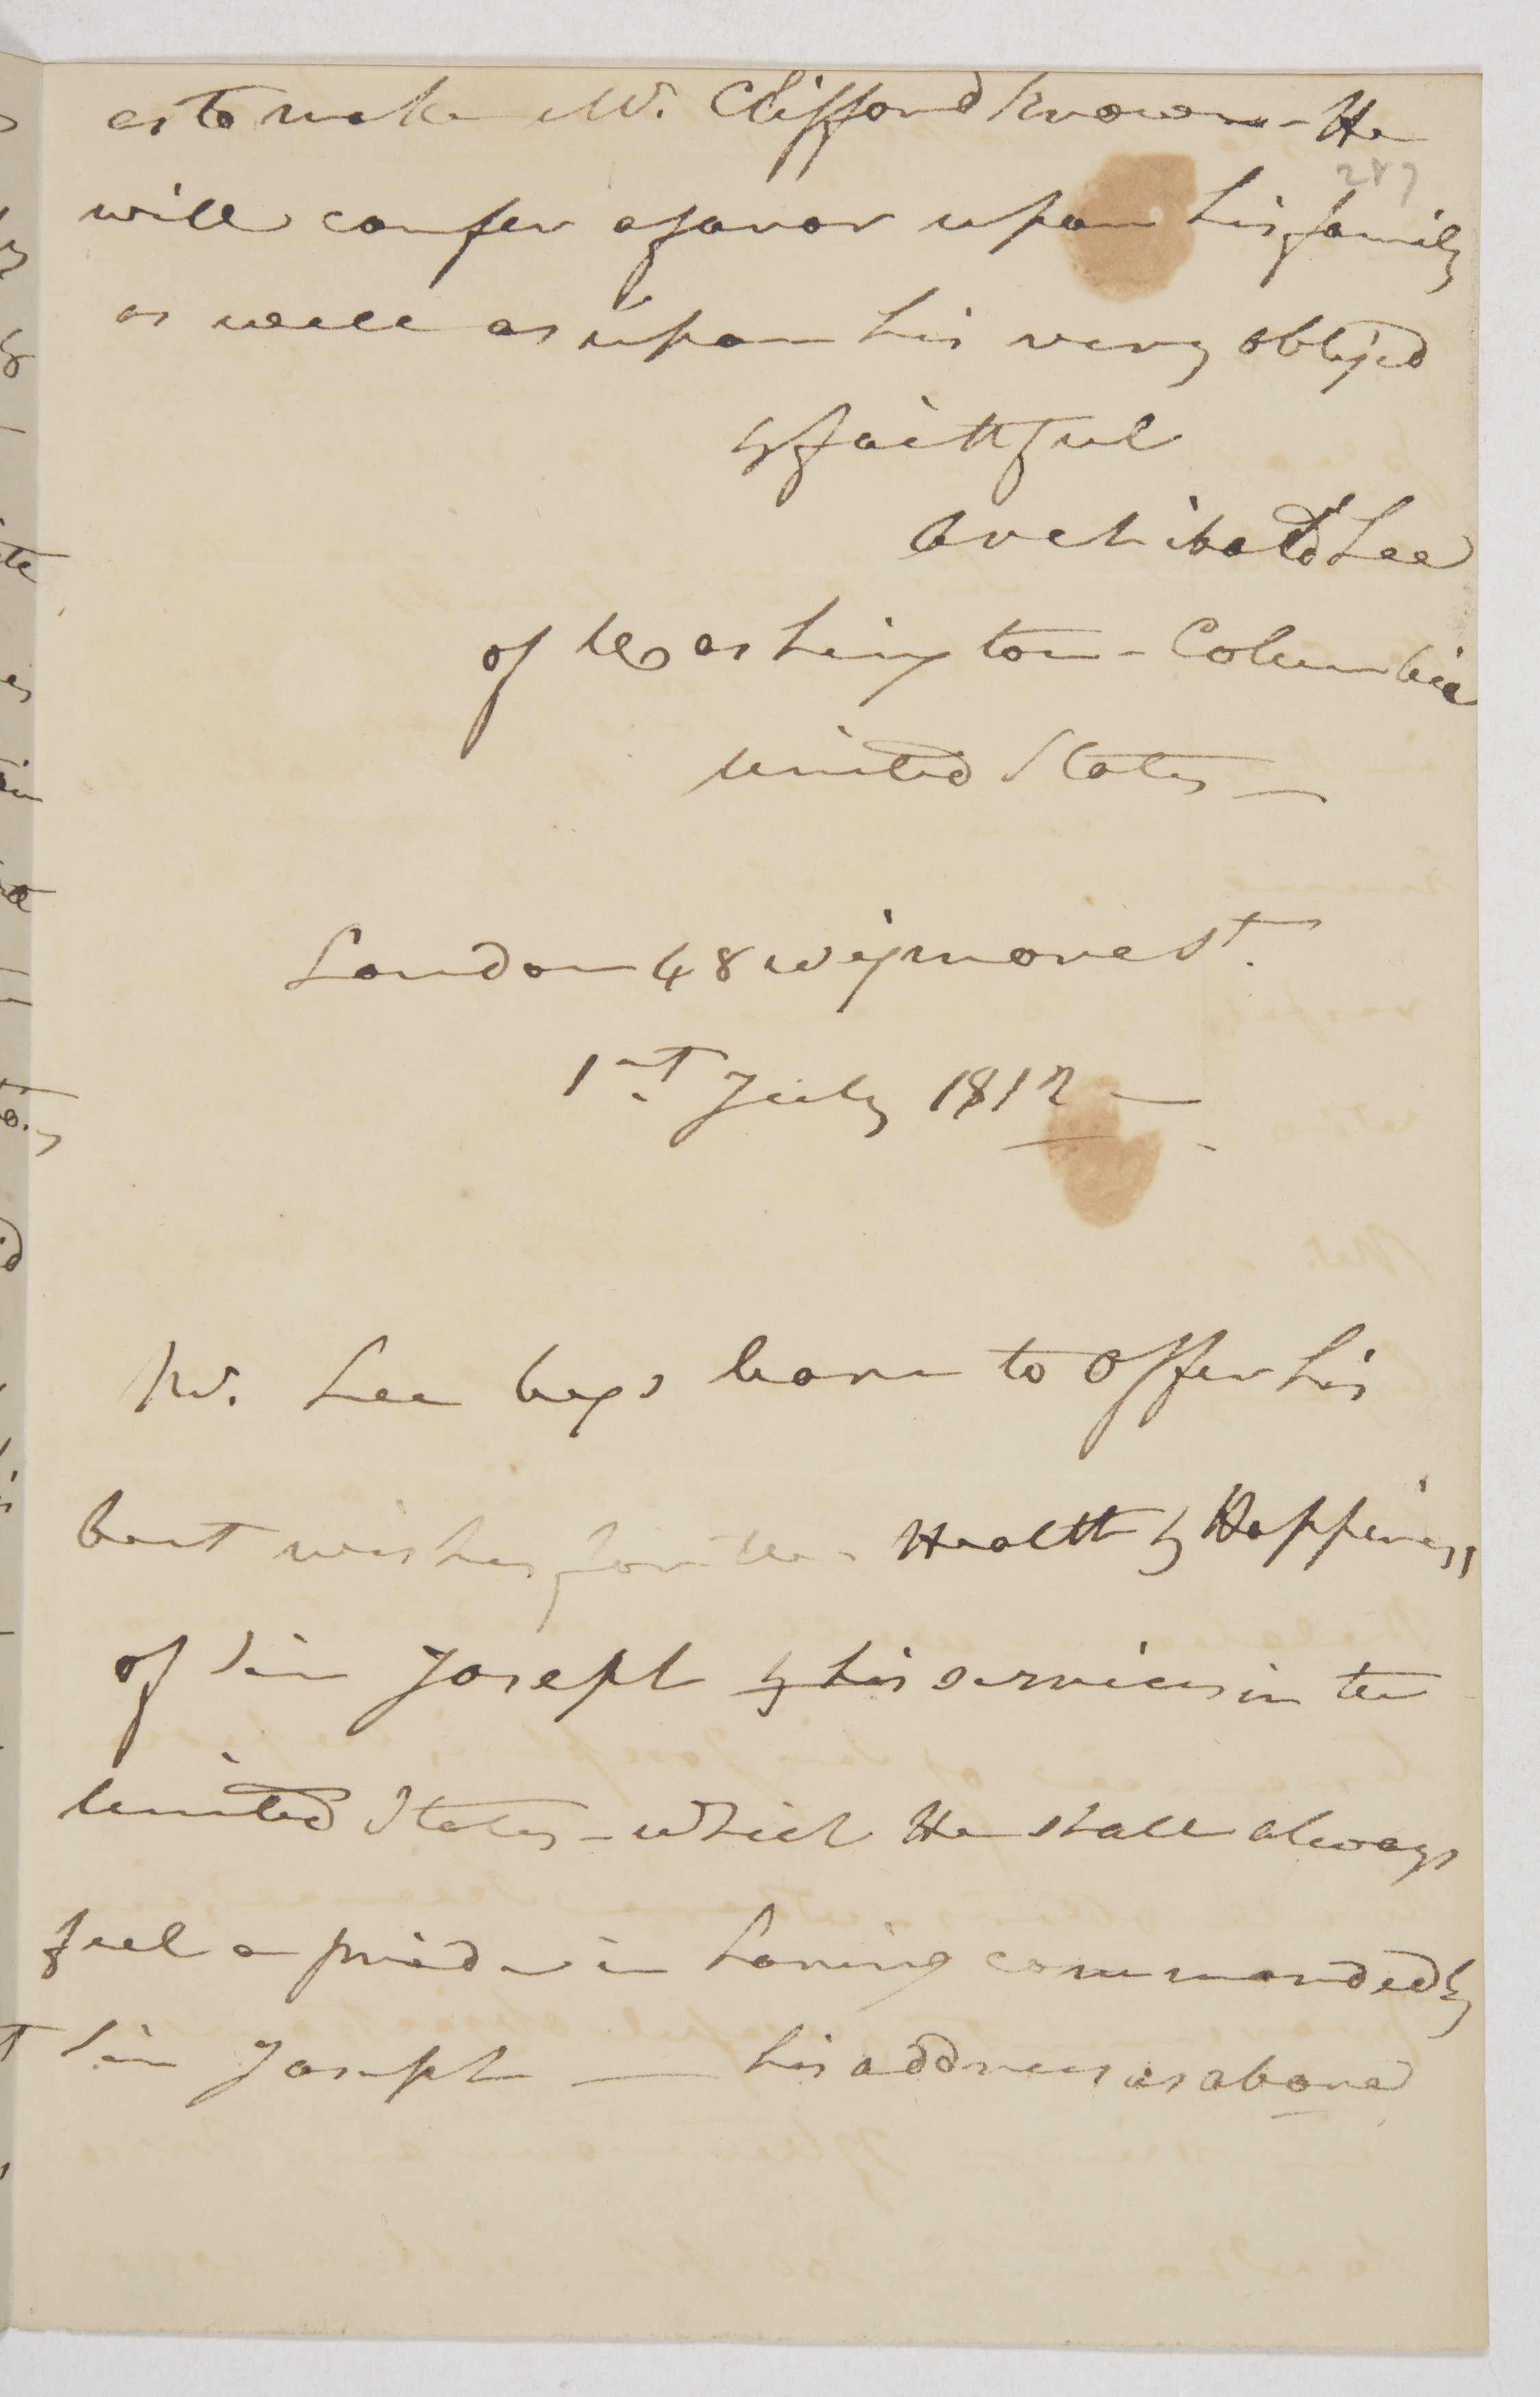 as to make Mr. Clifford known - He
287
will confer a favor upon his family
as well as upon his very oblig'd
& faithful
Archibald Lee
of Washington - Columbia
United States —
London 48 Wigmore St.
1st. July 1817 —
Mr. Lee begs leave to offer his
best wishes for the Health & Happiness
of Sir Joseph & his services in the
United States - which He shall always
feel a pride in having commanded by
Sir Joseph — his address as above